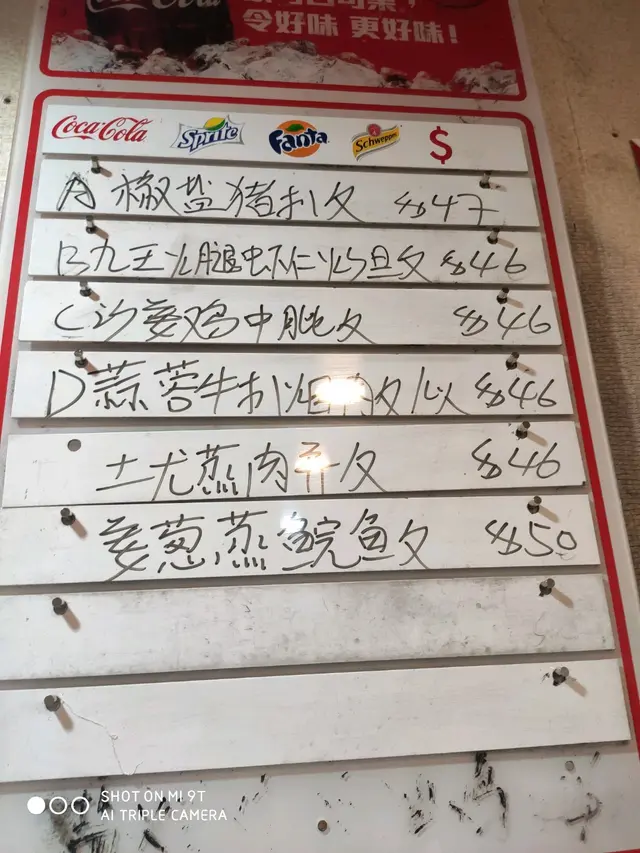 Coca-Cola
令好味 更好味!
Coca-Cola Sprite Fanta Schweppes $
A 椒盐猪扒反 $47
B 九王火腿虾仁炒旦反 $46
C 沙姜鸡中脾反 $46
D 蒜蓉牛扒 $46
土尤蒸肉 反 $46
姜葱蒸鲩鱼反 $50
SHOT ON MI 9T
AI TRIPLE CAMERA